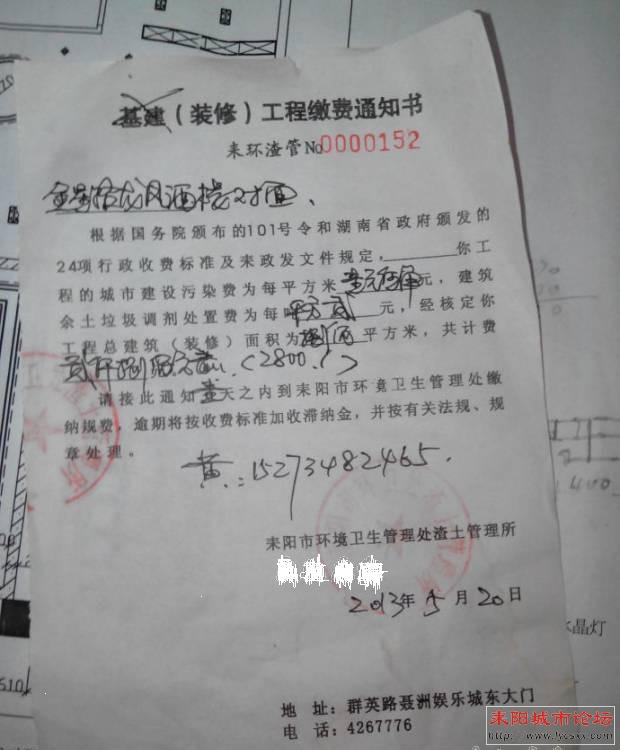 基建（装修）工程缴费通知书
耒环渣管№0000152
酒楼对面、
根据国务院颁布的101号令和湖南省政府颁发的
24项行政收费标准及耒政发文件规定，________你工
程的城市建设污染费为每平方米 元，建筑
余土垃圾调剂处置费为每平方 元，经核定你
工程总建筑（装修）面积为捌佰平方米，共计费
贰仟捌佰元（2800.）
请接此通知 天之内到耒阳市环境卫生管理处缴
纳规费，逾期将按收费标准加收滞纳金，并按有关法规、规
章处理。
黄：15273482465.
耒阳市环境卫生管理处渣土管理所
2013年5月20日
地 址：群英路聂洲娱乐城东大门
电 话：4267776
水晶灯
1400
510
耒阳城市论坛
www.lysxx.com